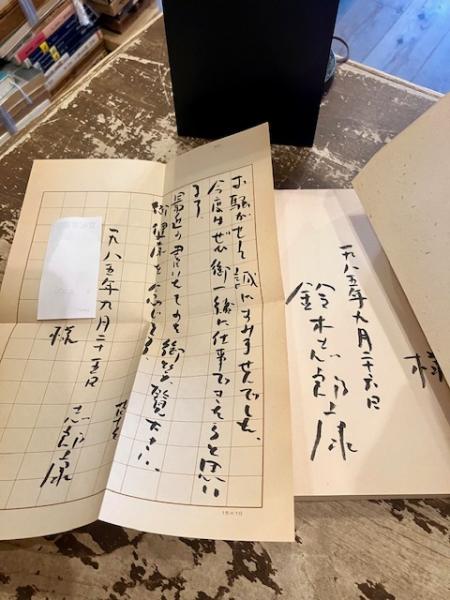 お騒がせして誠にすみませんでした。
今度はぜひ御一緒に仕事できたらと思い
ます
最近の書いたものを御笑覧下さい。
御健康を念じます
一九八五年九月二十五日
志郎康
様
一九八五年九月二十六日
鈴木志郎康
様